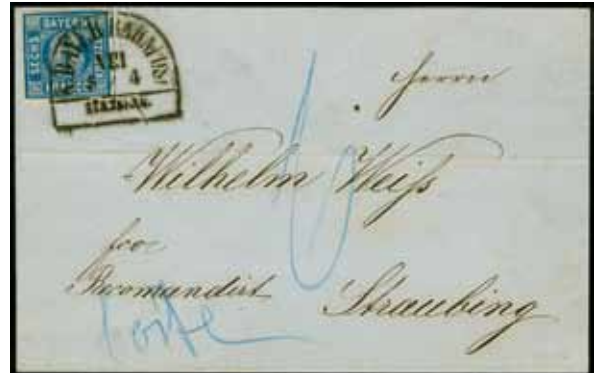 BAYERN
SECHS
MEI
4
Herrn
Wilhelm Weiß
6
fro
Recomandirt
Straubing